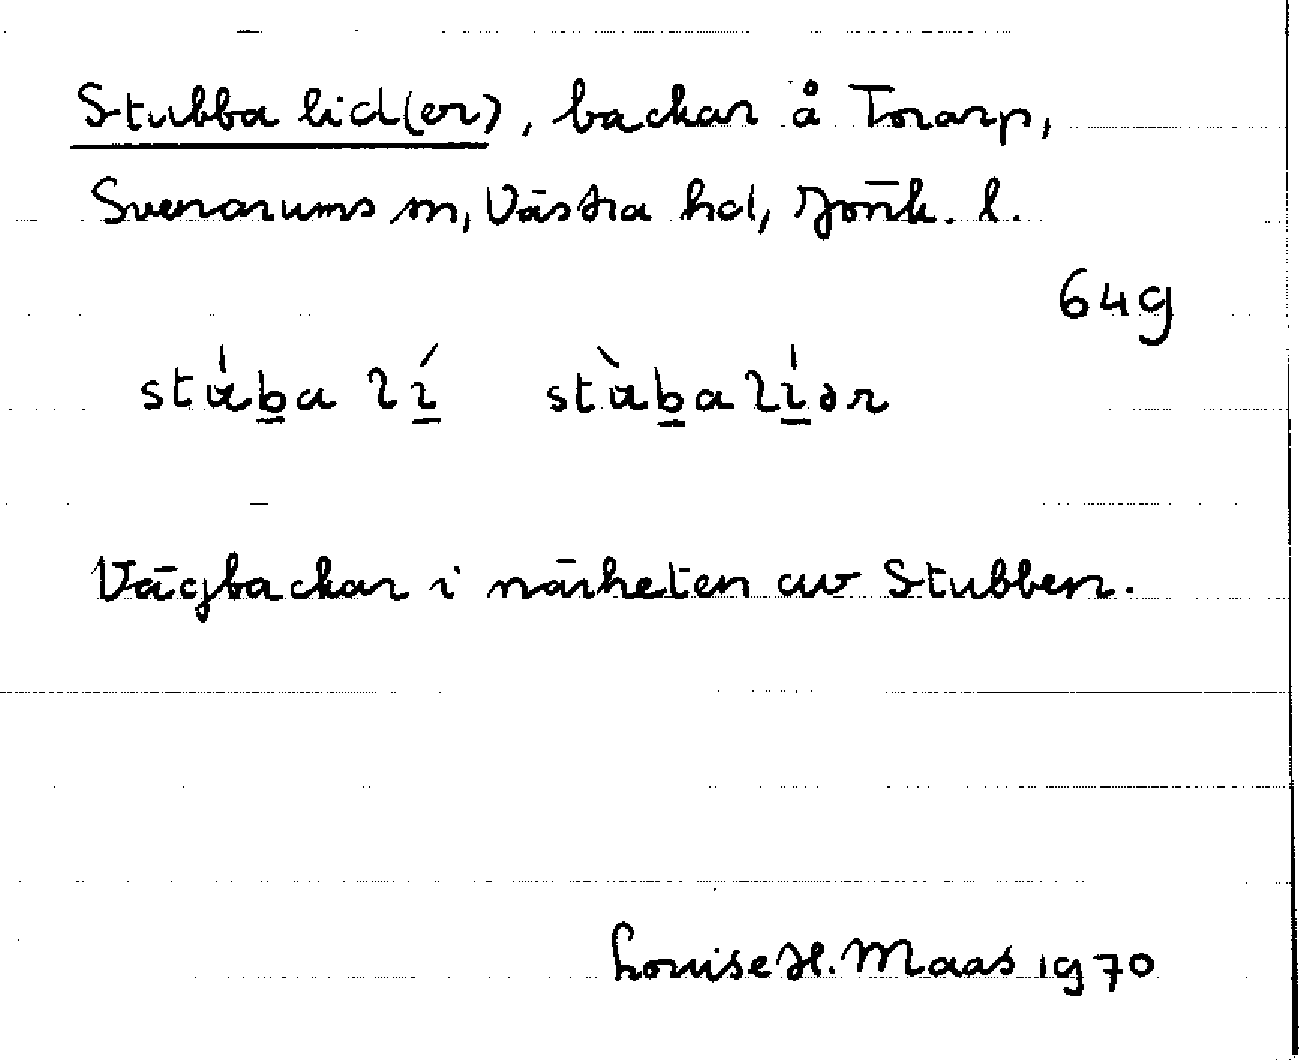 Stubba lid(er), backar å Torarp,
Svenarums sn, Västra hd, Jönk. l.
64g
stúba lí stùbalíər
Vägbackar i närheten av Stubben.
Louise H. Maas 1970